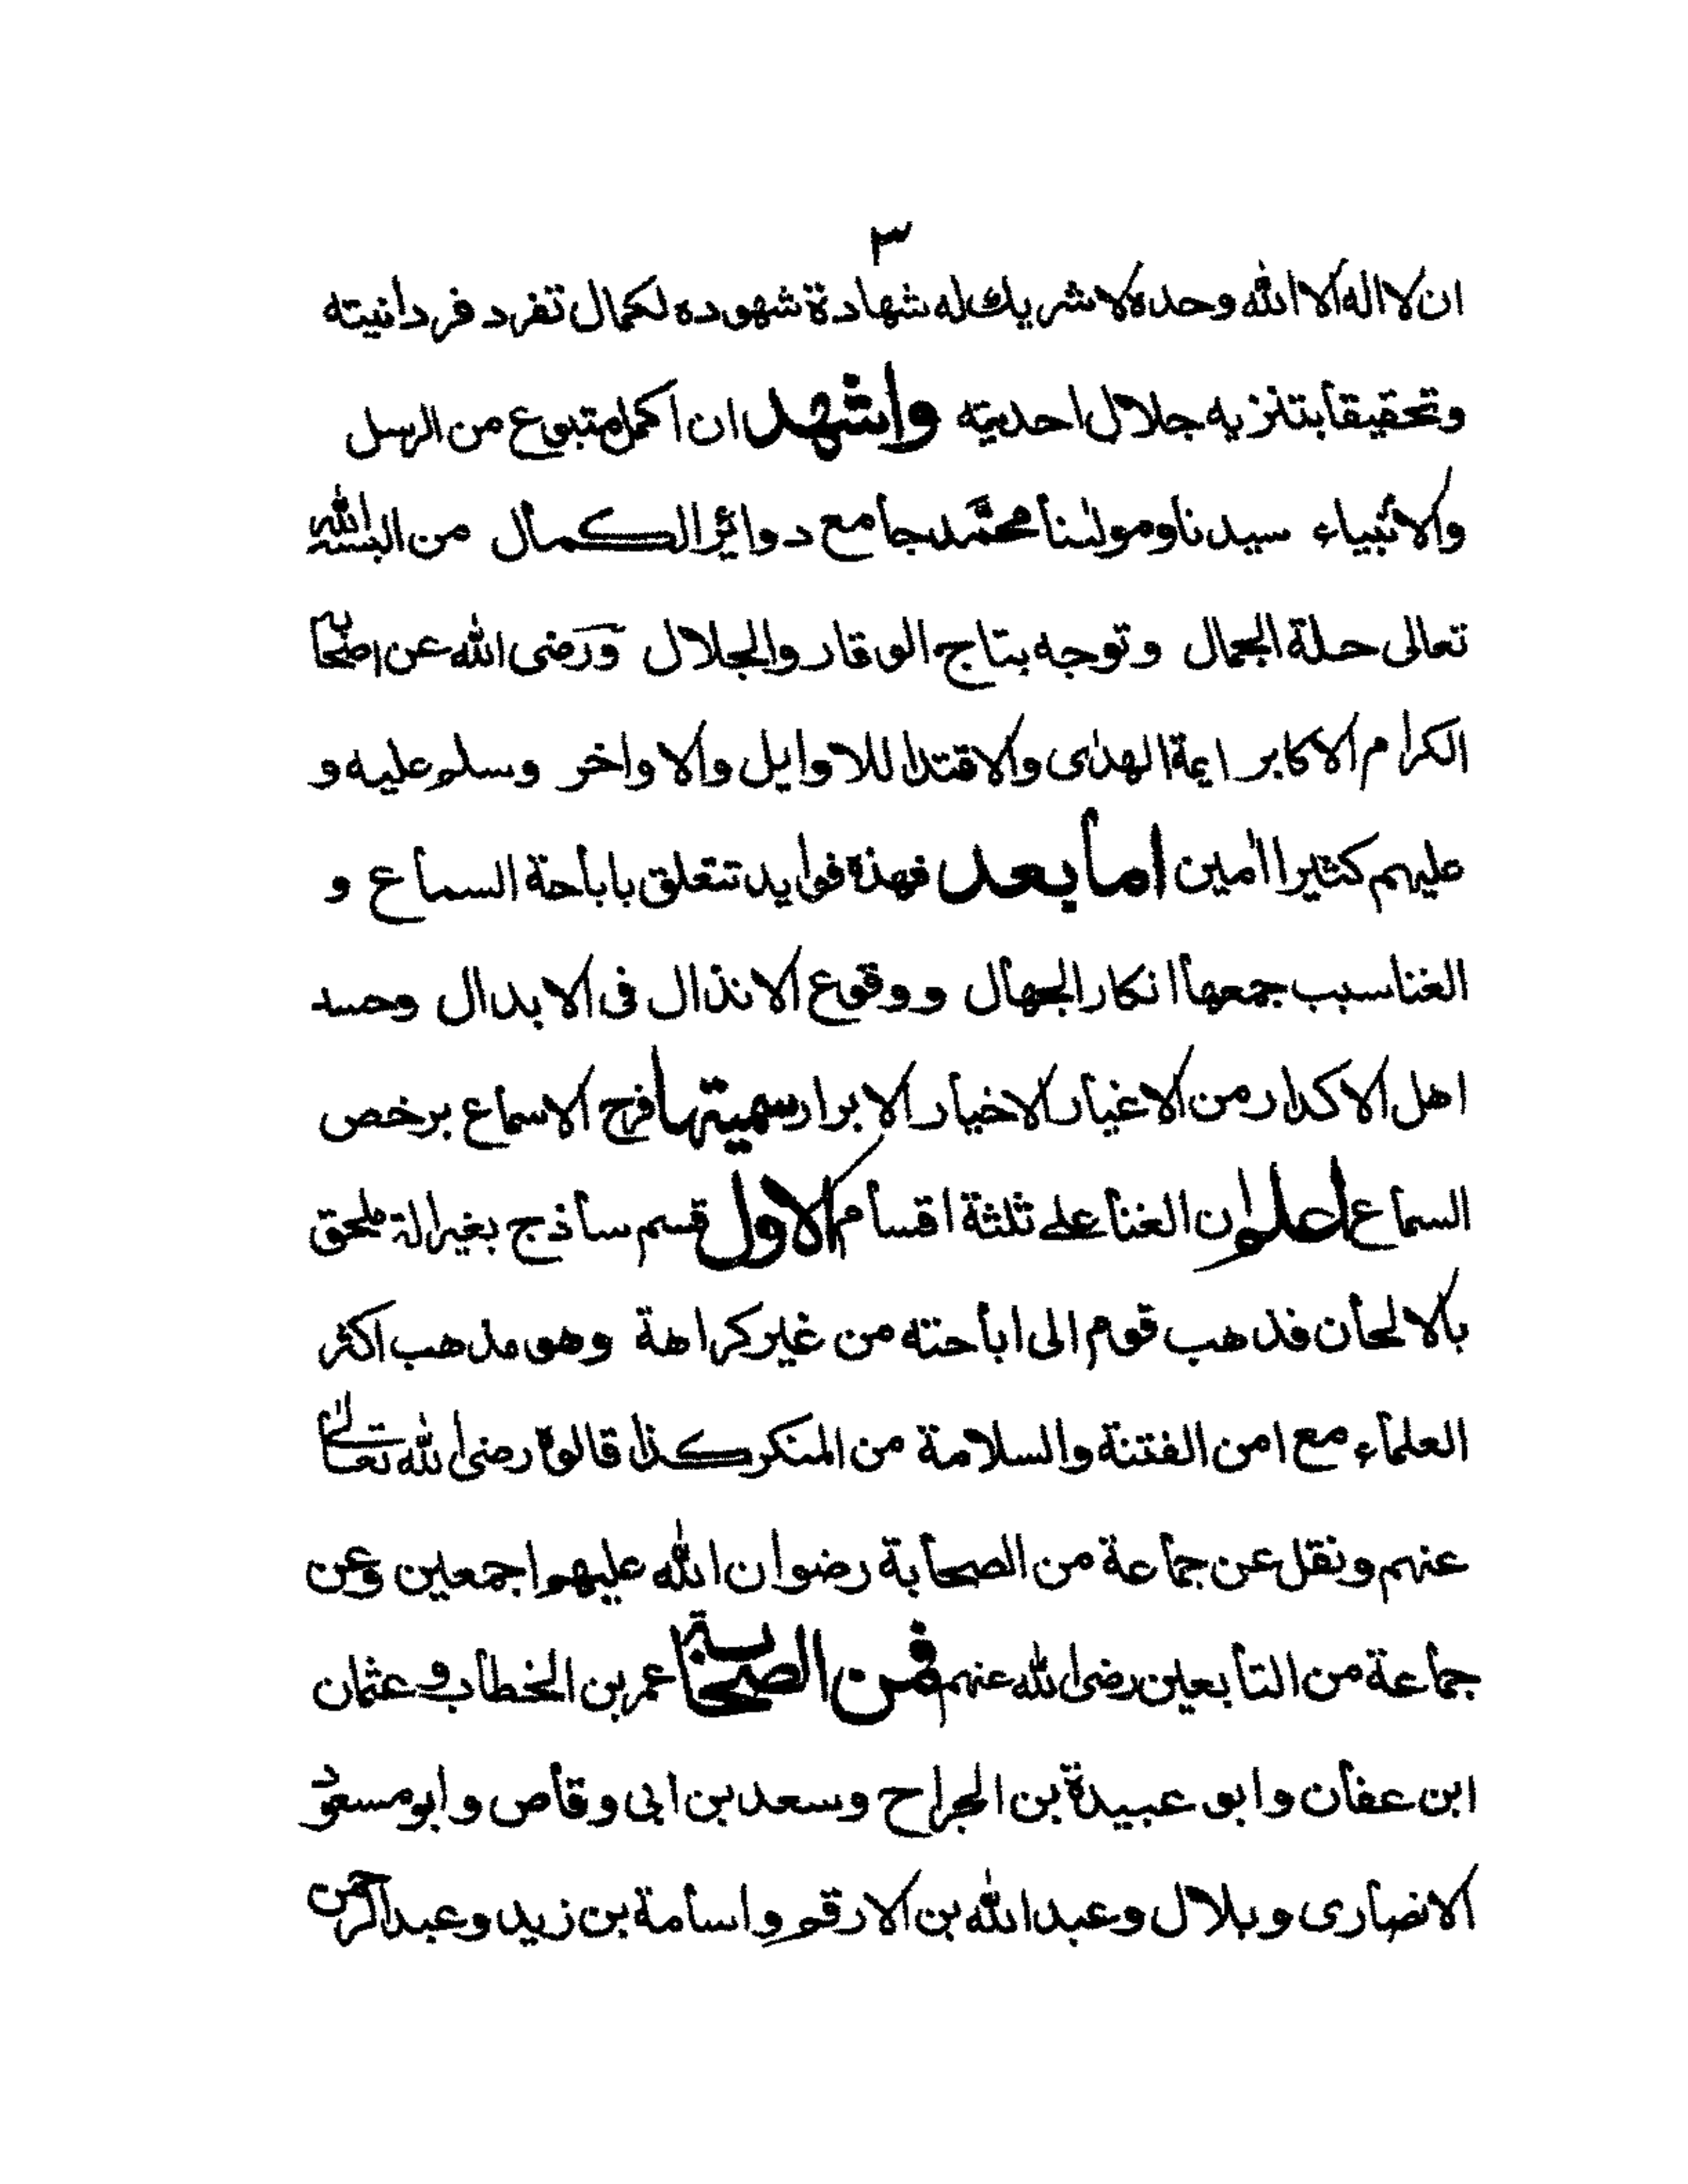 ٣
ان لا اله الا الله وحده لا شريك له شهادة شهوده لكمال تفرد فردانيته
وتحقيقا بتنزيه جلال احديته واشهد ان اكمل متبوع من الرسل
والانبياء سيدنا ومولٰنا محمّد جامع دوائر الكمال من البسه الله
تعالى حلة الجمال وتوجه بتاج الوقار والجلال ورَضى الله عن اصحابه
الكرام الاكابر ايمة الهدٰى والاقتدا للاوايل والاواخر وسلم عليه و
عليهم كثيرا اٰمين اما بعد فهذه فوايد تتعلق باباحة السماع و
الغنا سبب جمعها انكار الجهال ووقوع الانذال فى الابدال وحسد
اهل الاكدار من الاغيار لاخيار الابرار سميتها فرح الاسماع برخص
السماع اعلم ان الغنا على ثلثة اقسام الاول قسم ساذج بغير الة ملحق
بالالحان فذهب قوم الى اباحته من غير كراهة وهو مذهب اكثر
العلماء مع امن الفتنة والسلامة من المنكر كذا قالوه رضى الله تعالىٰ
عنهم ونقل عن جماعة من الصحابة رضوان الله عليهم اجمعين وعن
جماعة من التابعين رضى الله عنهم فمن الصحابة عمر بن الخطاب وعثمان
ابن عفان وابو عبيدة بن الجراح وسعد بن ابى وقاص وابو مسعود
الانصارى وبلال وعبد الله بن الارقم واسامة بن زيد وعبد الرحمن